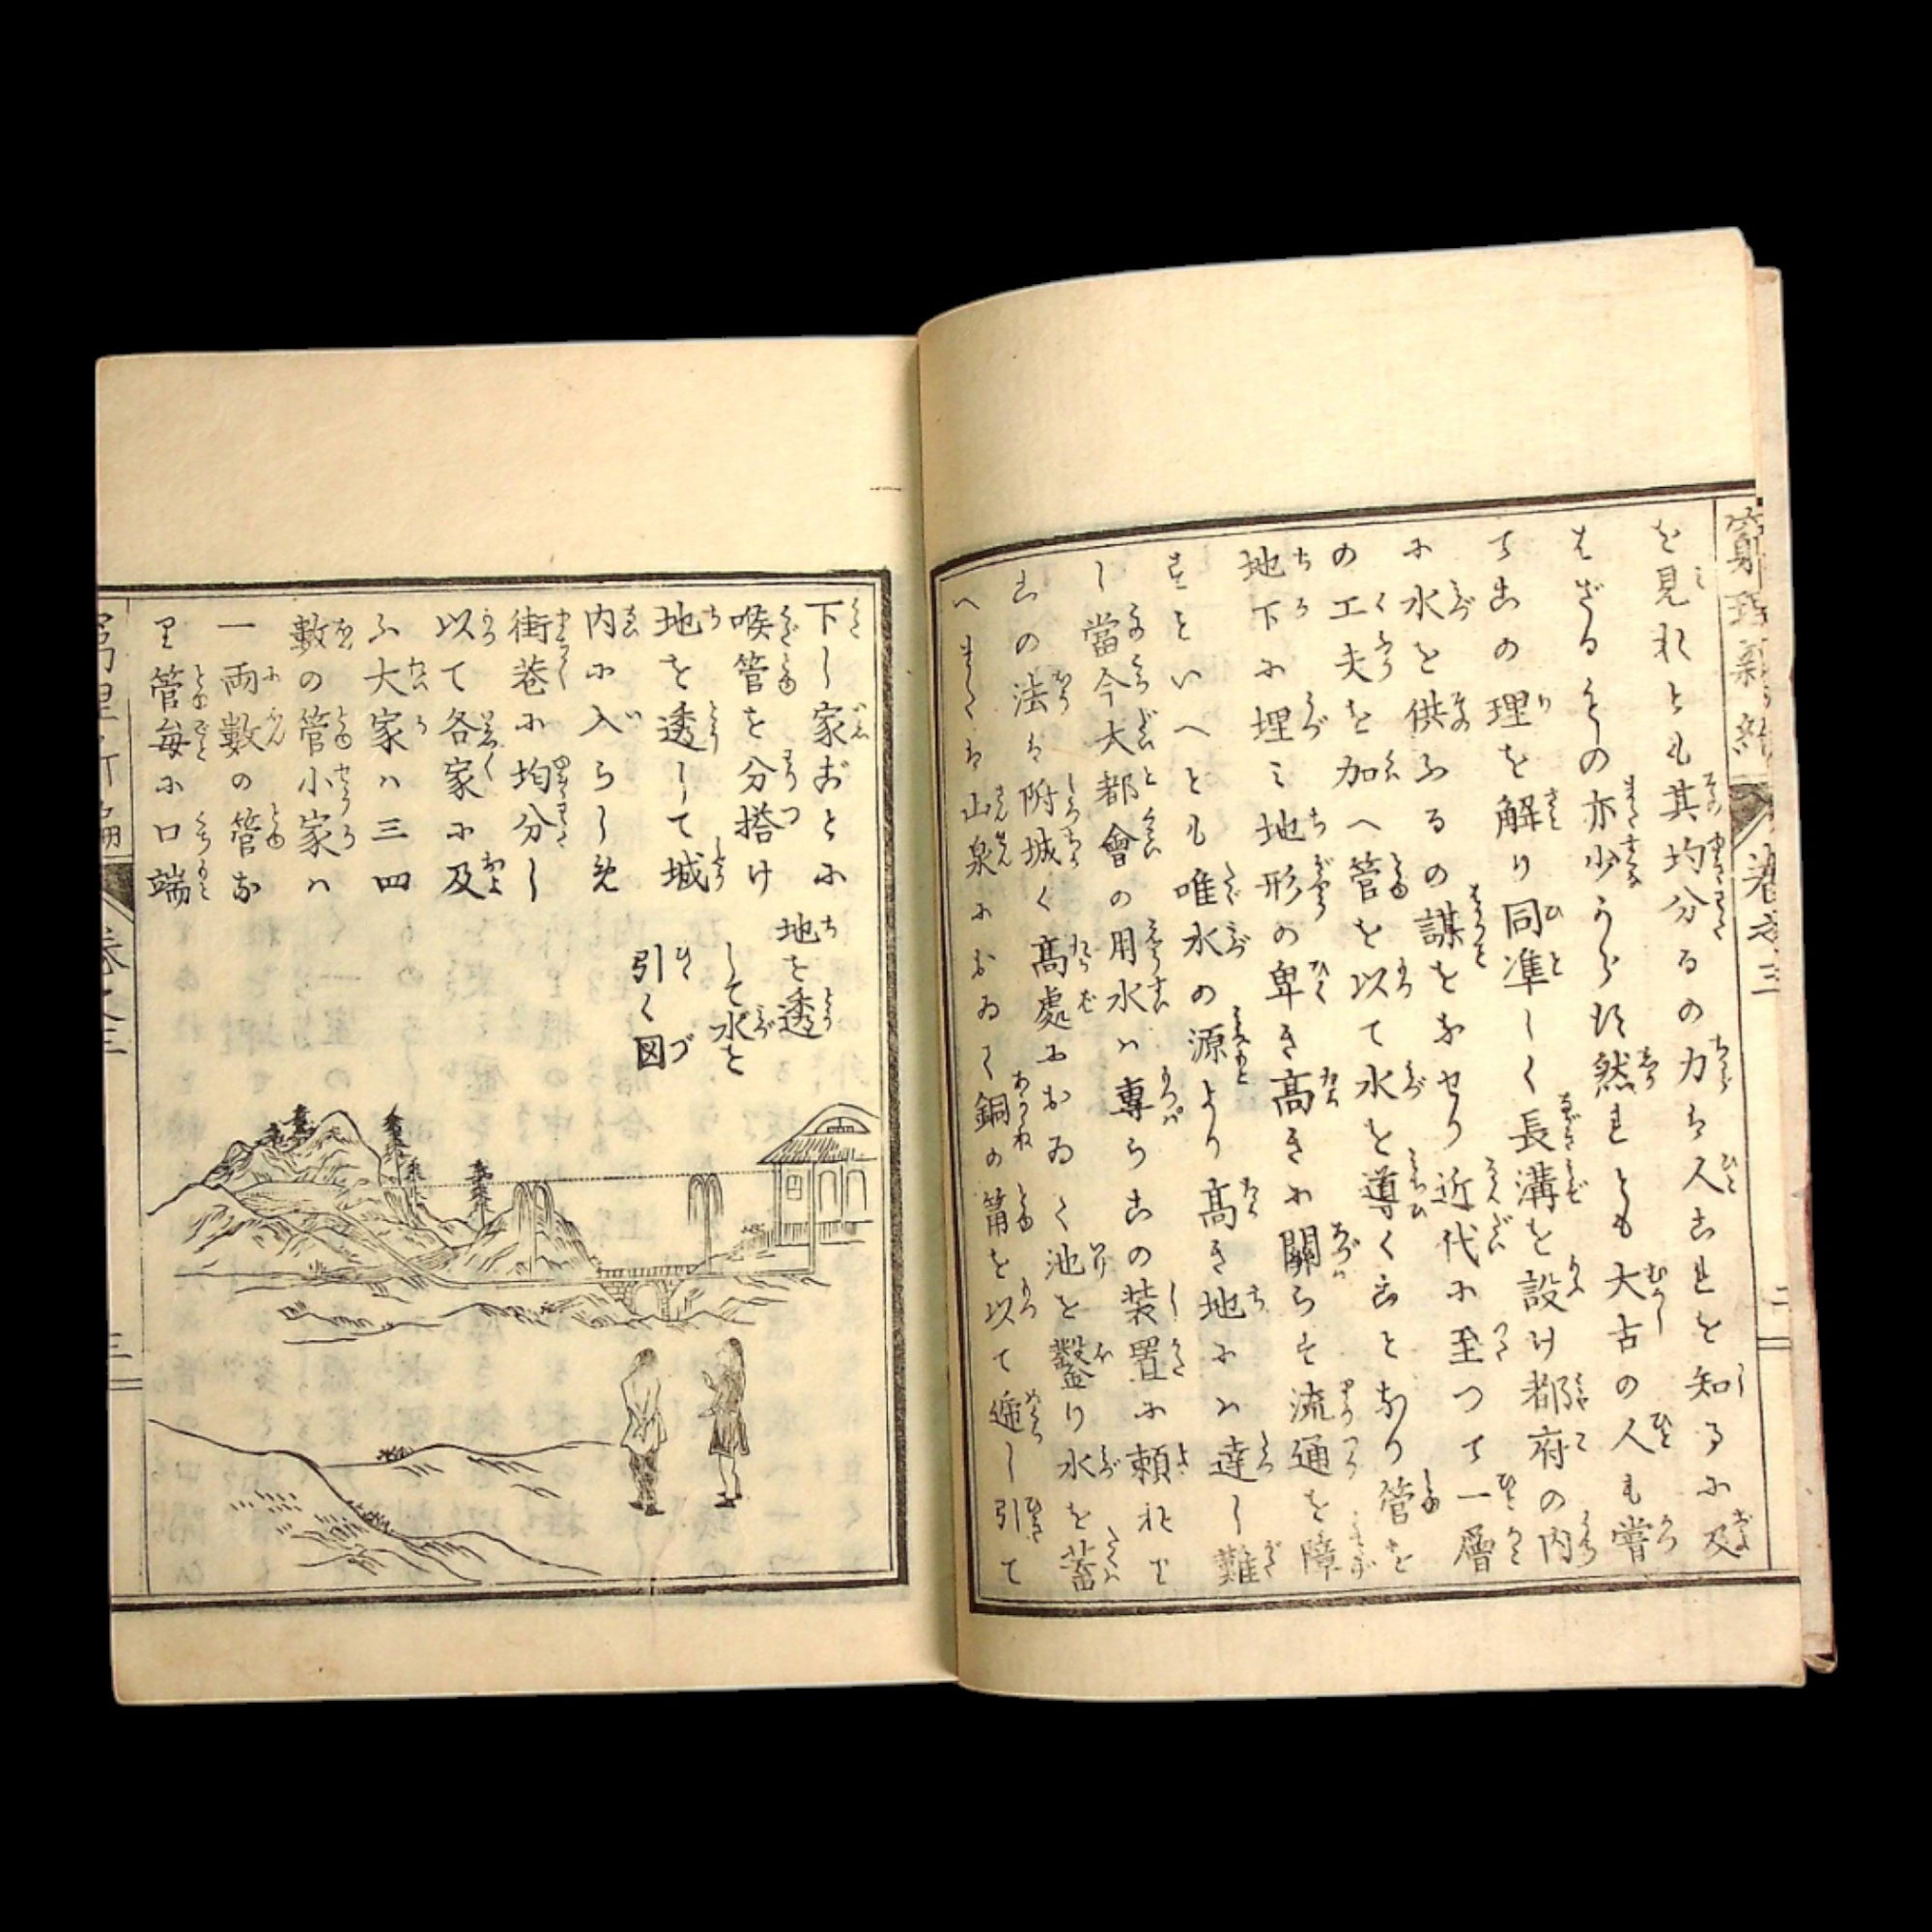 を見れとも其均分るの力は人これを知るに及
はざるもの亦少からず然れとも大古の人も嘗
てこの理を解り同準しく長溝を設け都府の内
に水を供ふるの謀をなせり近代に至つて一層
の工夫を加へ管を以て水を導くことなり管を
地下に埋みて地形の卑き高きに關らず流通を障
ずといへとも唯水の源より高き地にハ達し難
し當今大都會の用水ハ專らこの装置に頼れば
この法は附城く高處において池を鑿り水を蓄
へまたは山泉において銅の筩を以て遞し引て
窮理新編
卷之三
二
下し家おとに
喉管を分搭け
地を透して城
内に入らしめ
街巷に均分し
以て各家に及
ふ大家ハ三四
數の管小家ハ
一兩數の管な
り管每に口端
地を透
して水を
引く図
卷之三
三